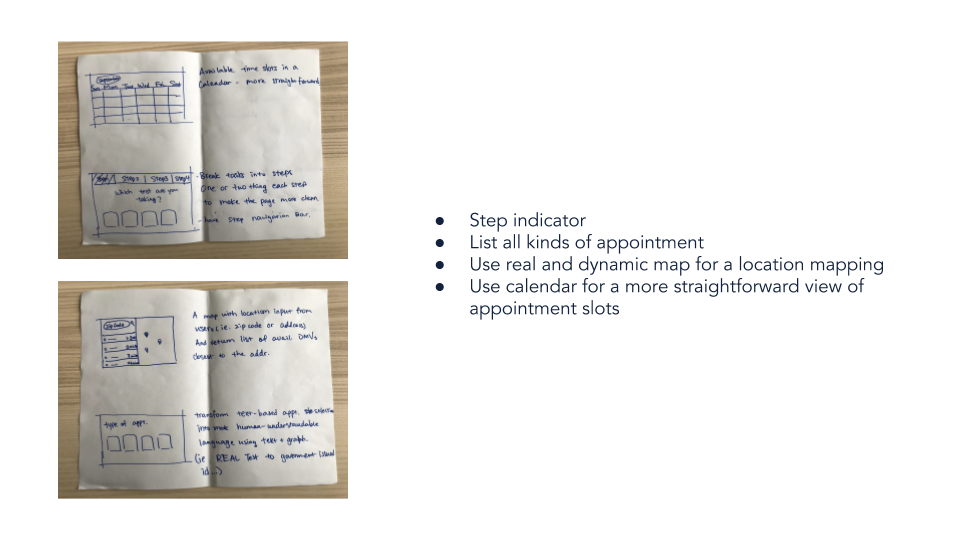 Sun Mon Tue Wed Fri
Available time slots in a
Calendar - more straightforward
Step2 | Step3 | Step4
Which test are you
taking?
-Break tasks into steps
One or two thing each step
to make the page more clean.
- have step navigation Bar.
zip code
A map with location input from
users (ie. zip code or address)
And return list of avail. DMVs
closest to the addr.
type of apps.
transform text-based apps. selection
into more human-understandable
language using text + graph.
(ie REAL Test to government issued
id...)
● Step indicator
● List all kinds of appointment
● Use real and dynamic map for a location mapping
● Use calendar for a more straightforward view of
appointment slots